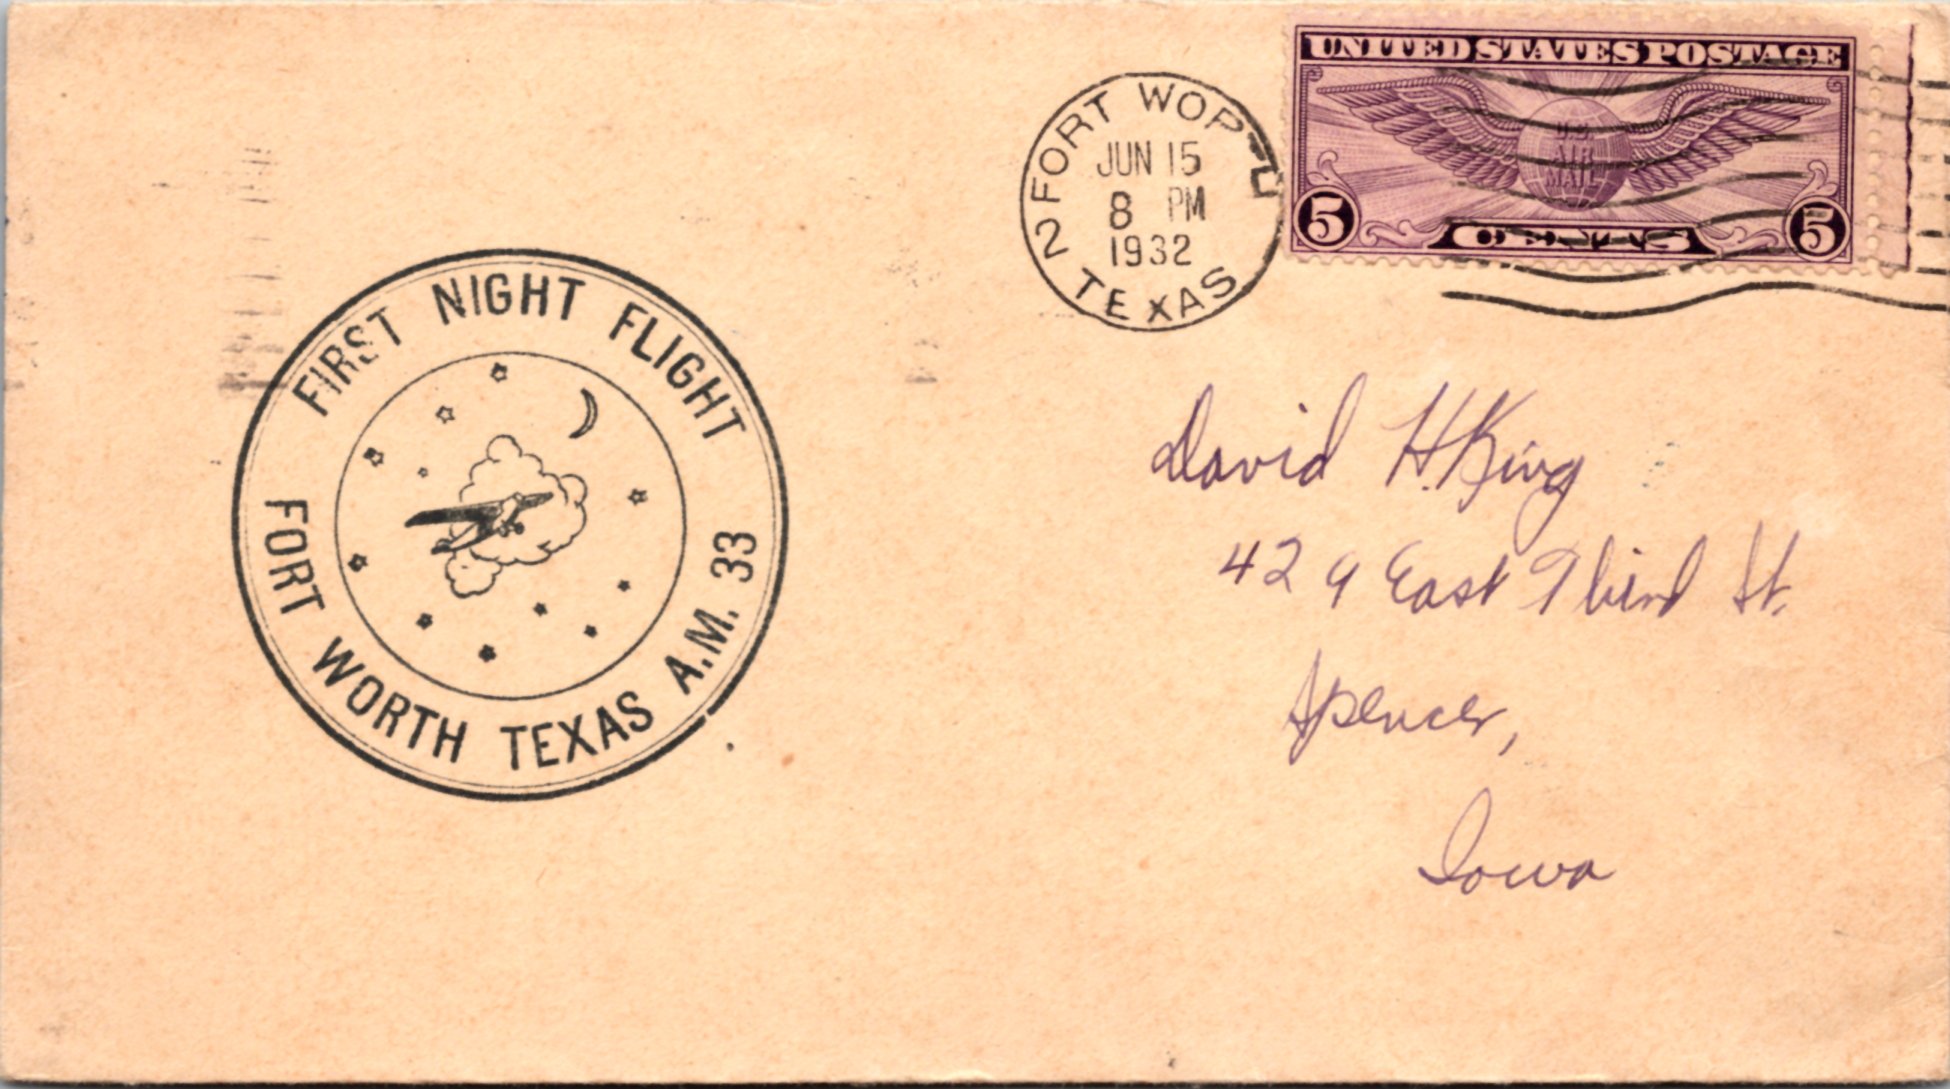 UNITED STATES POSTAGE
U.S.
AIR
MAIL
5 CENTS 5
FORT WORTH
JUN 15
8 PM
1932
2
TEXAS
FIRST NIGHT FLIGHT
FORT WORTH TEXAS A.M. 33
David H. King
429 East Third St.
Spencer,
Iowa